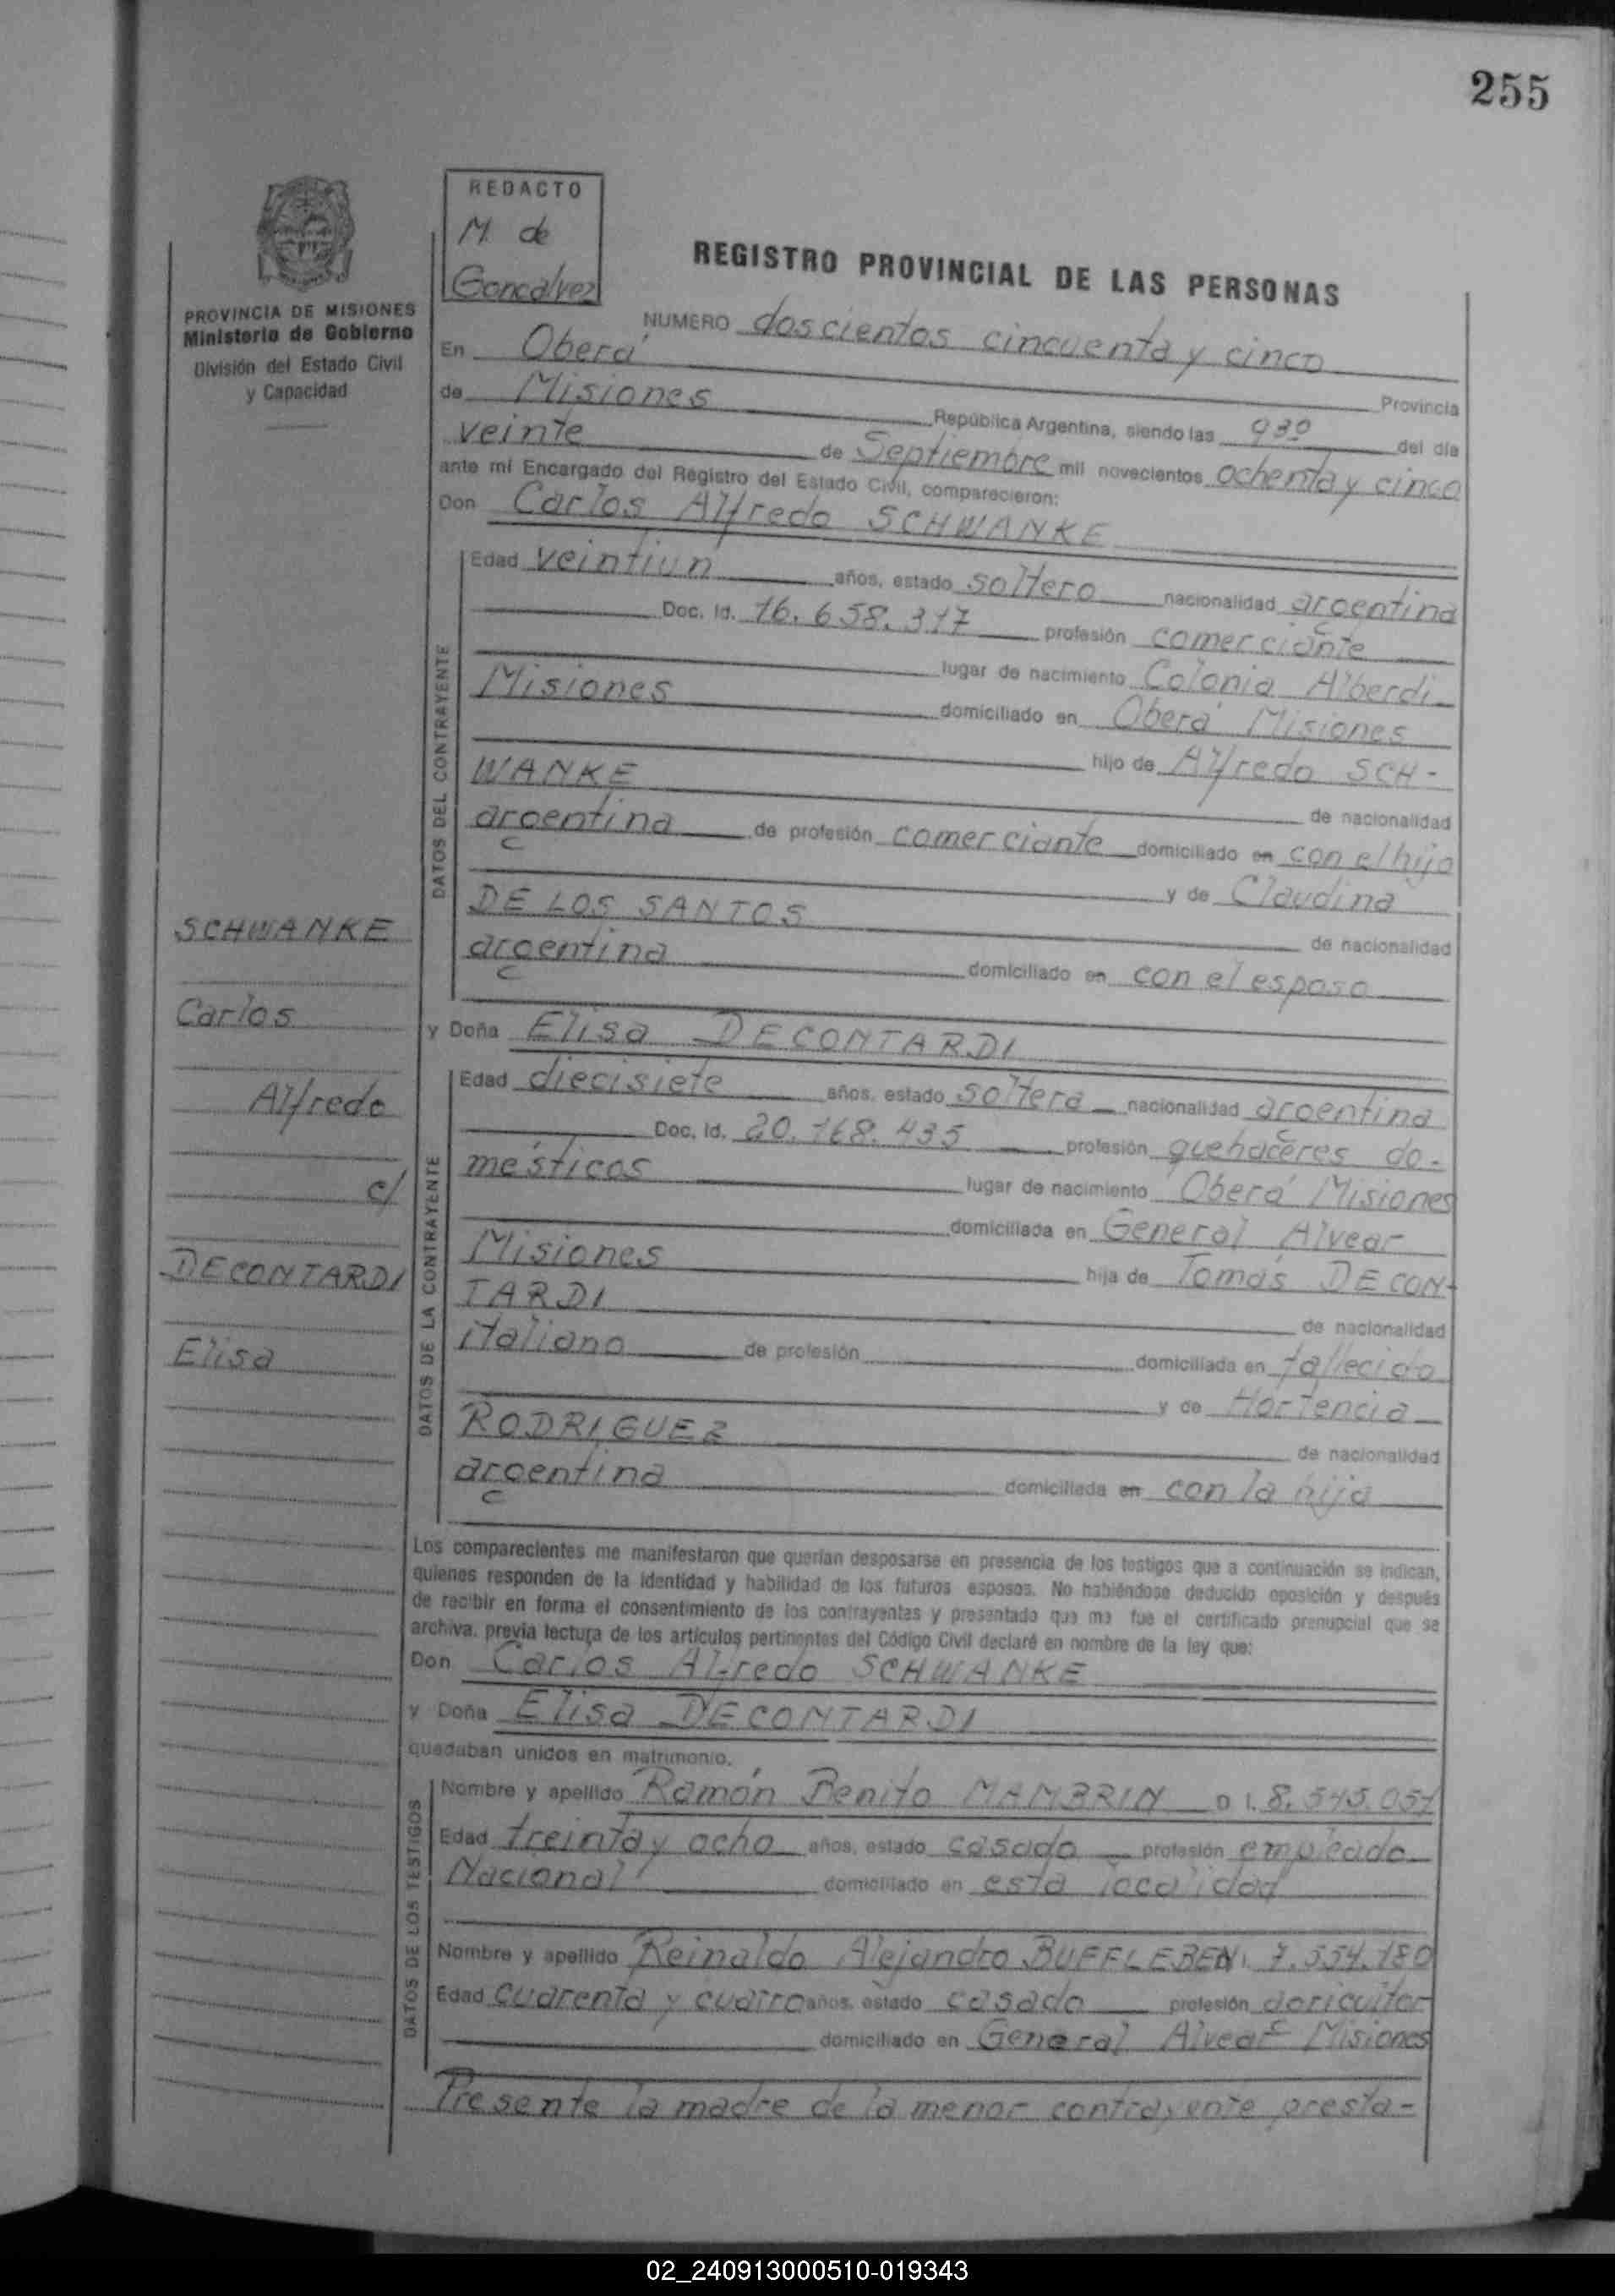 255
REDACTO
M. de
Goncalvez
PROVINCIA DE MISIONES
Ministerio de Gobierno
División del Estado Civil
y Capacidad
REGISTRO PROVINCIAL DE LAS PERSONAS
NUMERO doscientos cincuenta y cinco
En Oberá Provincia
de Misiones República Argentina, siendo las 9 30 del día
veinte de Septiembre mil novecientos ochenta y cinco
ante mí Encargado del Registro del Estado Civil, comparecieron:
Don Carlos Alfredo SCHWANKE
DATOS DEL CONTRAYENTE
Edad veintiun años, estado soltero nacionalidad argentina
Doc. Id. 16.658.317 profesión comerciante
lugar de nacimiento Colonia Alberdi
Misiones domiciliado en Oberá Misiones
hijo de Alfredo SCH-
WANKE de nacionalidad
argentina de profesión comerciante domiciliado en con el hijo
y de Claudina
DE LOS SANTOS de nacionalidad
argentina domiciliado en con el esposo
SCHWANKE
Carlos
Alfredo
c/
DECONTARDI
Elisa
y Doña Elisa DECONTARDI
DATOS DE LA CONTRAYENTE
Edad diecisiete años, estado soltera nacionalidad argentina
Doc. Id. 20.168.435 profesión quehaceres do-
mésticos lugar de nacimiento Oberá Misiones
domiciliada en General Alvear
Misiones hija de Tomás DECON-
TARDI de nacionalidad
italiano de profesión domiciliada en fallecido
y de Hortencia
RODRIGUEZ de nacionalidad
argentina domiciliada en con la hija
Los comparecientes me manifestaron que querían desposarse en presencia de los testigos que a continuación se indican,
quienes responden de la identidad y habilidad de los futuros esposos. No habiéndose deducido oposición y después
de recibir en forma el consentimiento de los contrayentes y presentado que me fue el certificado prenupcial que se
archiva, previa lectura de los artículos pertinentes del Código Civil declaré en nombre de la ley que:
Don Carlos Alfredo SCHWANKE
y Doña Elisa DECONTARDI
quedaban unidos en matrimonio.
DATOS DE LOS TESTIGOS
Nombre y apellido Ramón Benito MAMBRIN D I. 8.545.051
Edad treinta y ocho años, estado casado profesión empleado
Nacional domiciliado en esta localidad
Nombre y apellido Reinaldo Alejandro BUFFLEBEN I. 7.554.180
Edad cuarenta y cuatro años, estado casado profesión agricultor
domiciliado en General Alvear Misiones
Presente la madre de la menor contrayente presta-
02_240913000510-019343